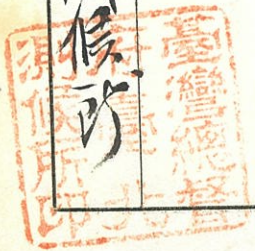 候所
臺灣總督
府臺
測候所印